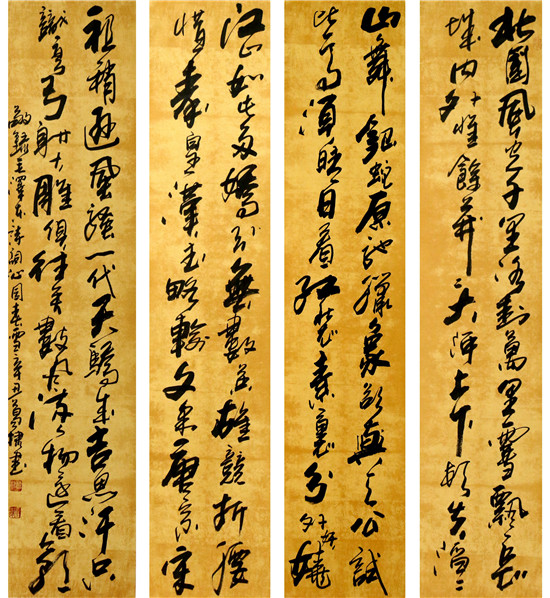 北國風光千里冰封萬里雪飄望長
城内外惟餘莽莽大河上下頓失滔滔
山舞銀蛇原馳蠟象欲與天公試
比高須晴日看紅裝素裹分外妖嬈
江山如此多嬌引無數英雄競折腰
惜秦皇漢武略輸文采唐宗宋
祖稍遜風騷一代天驕成吉思汗只
識彎弓射大雕俱往矣數風流人物還看今朝
敬錄毛澤東詩詞沁園春雪辛丑書